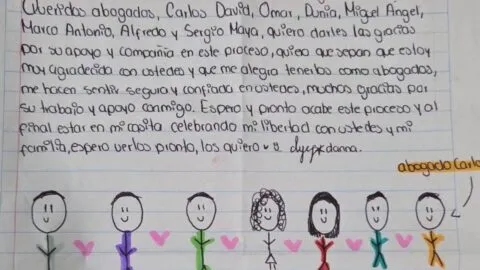 Queridos abogados, Carlos David, Omar, Dunia, Miguel Angel,
Marco Antonio, Alfredo y Sergio Maya, quiero darles las gracias
por su apoyo y compañia en este proceso, quiero que sepan que estoy
muy agradecida con ustedes y que me alegra tenerlos como abogados,
me hacen sentir segura y confiada en ustedes, muchas gracias por
su trabajo y apoyo conmigo. Espero y pronto acabe este proceso y al
final estar en mi casita celebrando mi libertad con ustedes y mi
familia, espero verlos pronto, los quiero
abogado Carlo